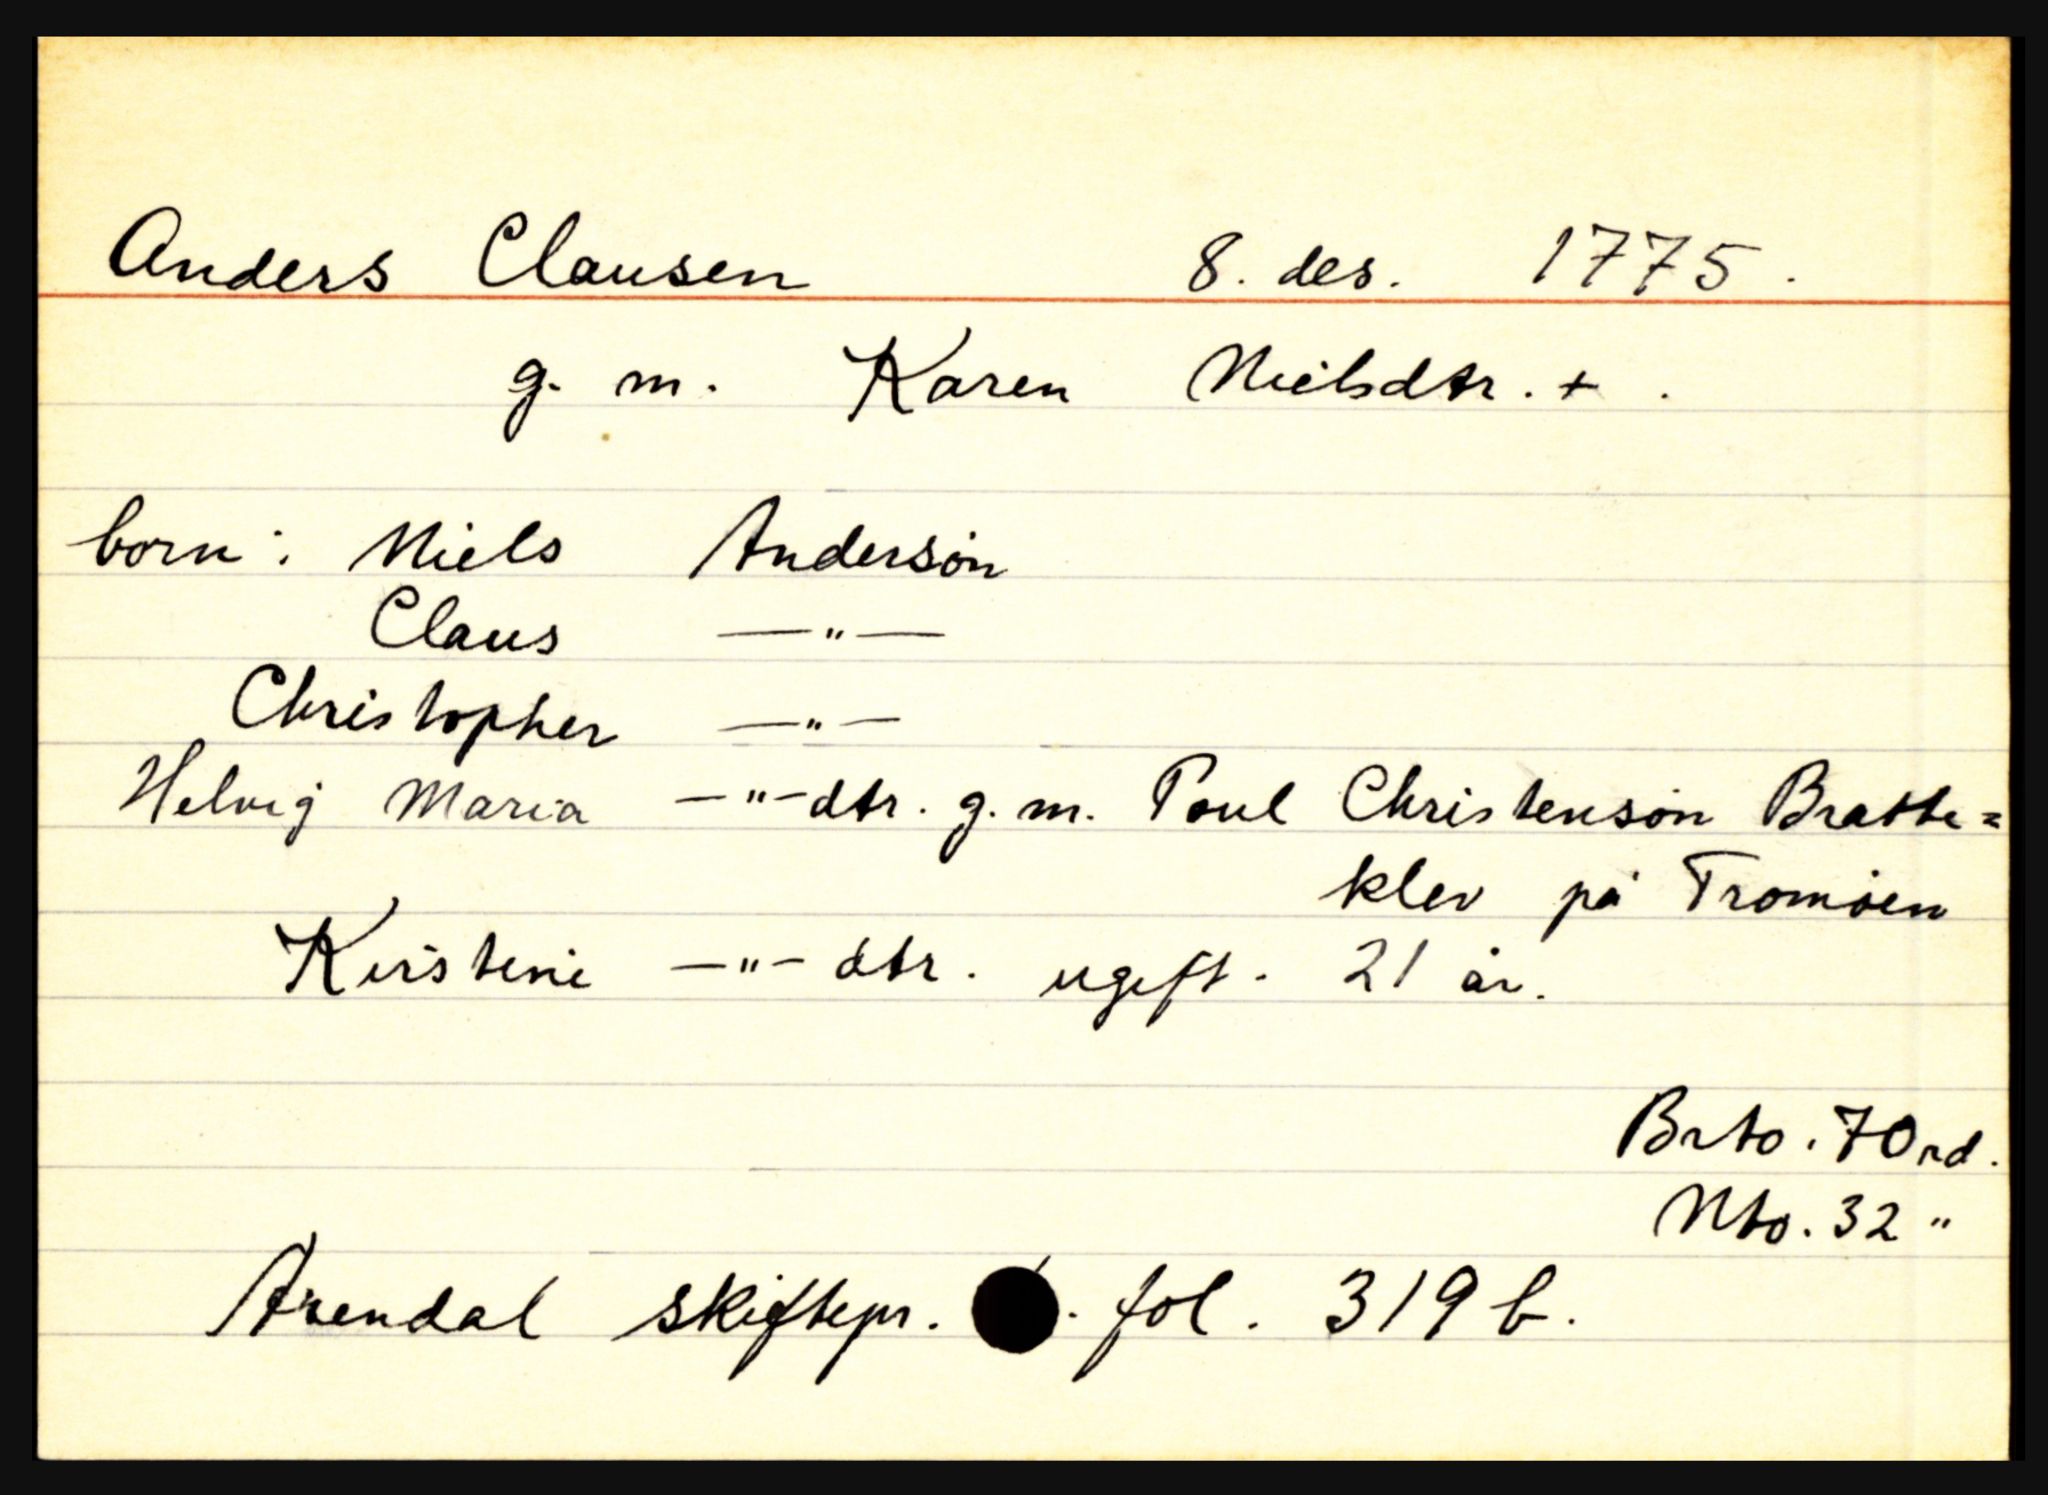 Anders Clausen 8. des. 1775.
g. m. Karen Nielsdtr. + .
born: Niels Andersøn
Claus —"—
Christopher —"—
Helvig Maria —"— dtr. g. m. Poul Christensøn Bratte=
klev på Tromøen
Kirstine —"— dtr. ugift. 21 år.
Brto. 70 rd.
Nto. 32 "
Arendal skiftepr. . fol. 319 b.